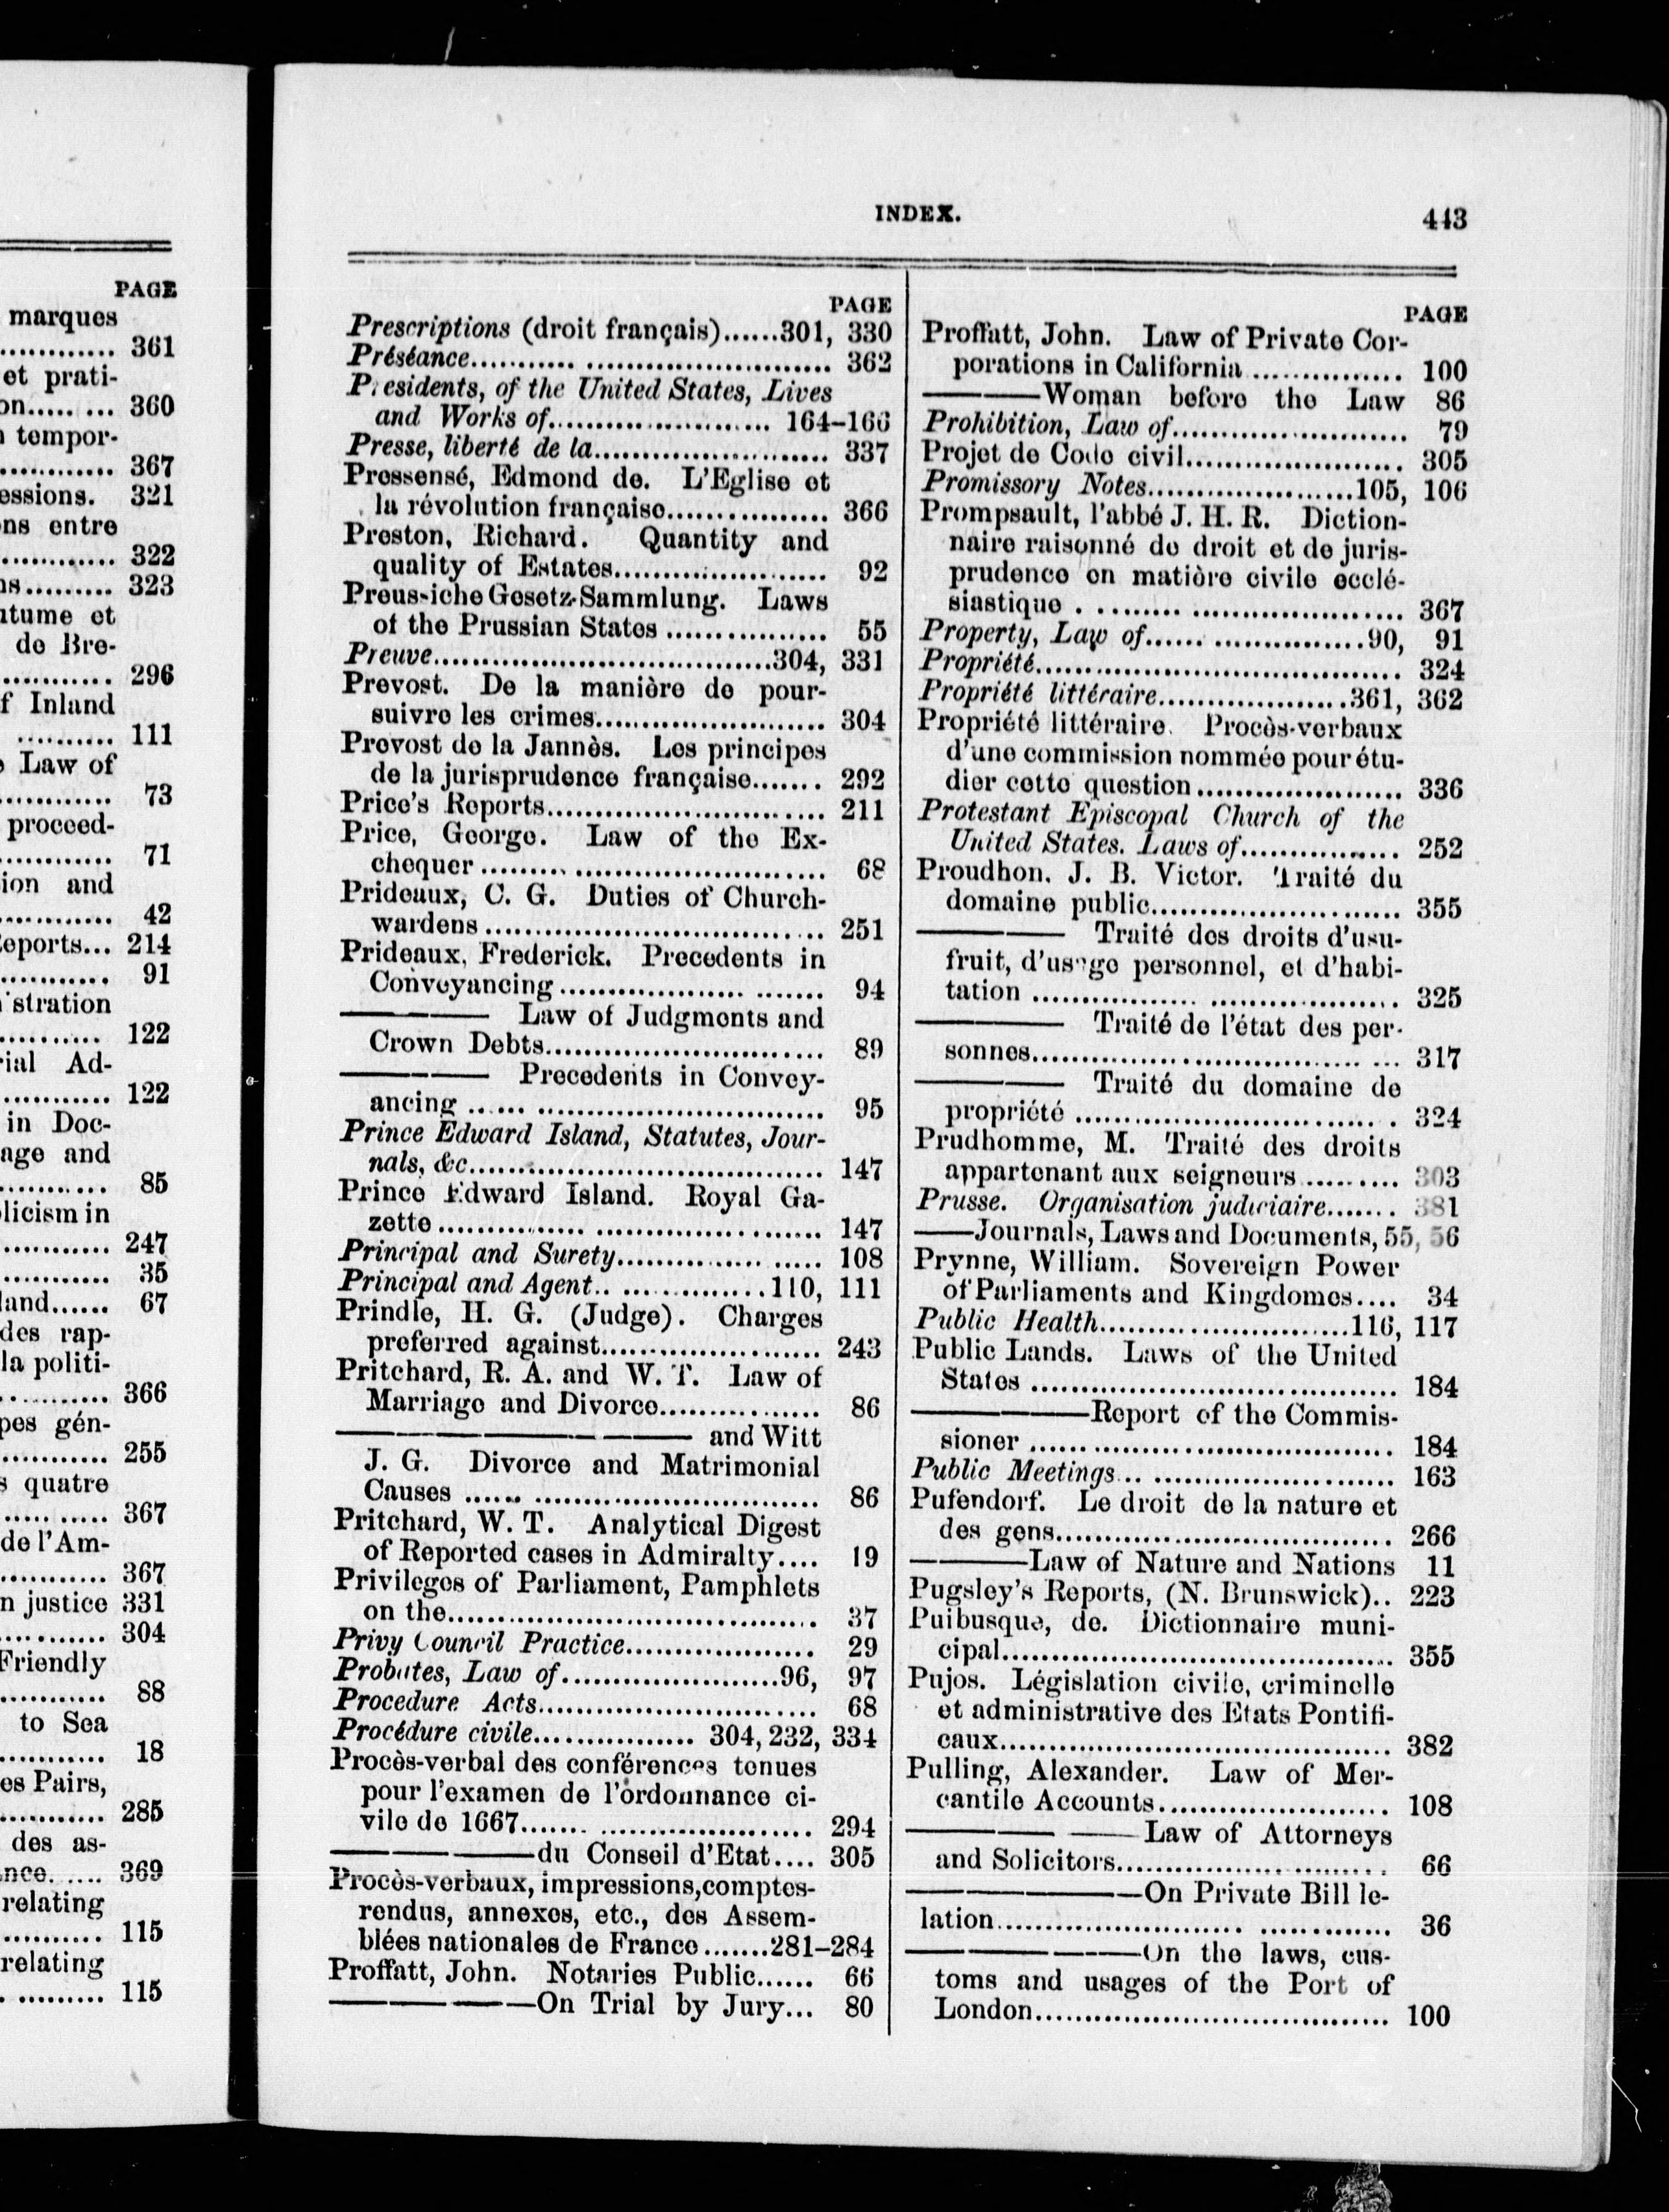 PAGE
marques
............ 361
et prati-
on..... ... 360
tempor-
............ 367
essions. 321
ons entre
............ 322
ns......... 323
utume et
de Bre-
............ 296
f Inland
.......... 111
Law of
............ 73
proceed-
............ 71
ion and
............ 42
eports... 214
............ 91
stration
.......... 122
rial Ad-
........... 122
in Doc-
age and
........... 85
licism in
............ 247
............ 35
land...... 67
des rap-
la politi-
........... 366
pes gén-
............ 255
s quatre
...... ..... 367
de l'Am-
............ 367
n justice 331
........... 304
Friendly
........... 88
to Sea
............ 18
es Pairs,
............ 285
des as-
nce. .... 369
relating
........... 115
relating
. ......... 115
INDEX. 443
PAGE
Prescriptions (droit français)......301, 330
Préséance........... ......................... 362
Presidents, of the United States, Lives
and Works of....................... 164-166
Presse, liberté de la......................... 337
Pressensé, Edmond de. L'Eglise et
la révolution française................. 366
Preston, Richard. Quantity and
quality of Estates....................... 92
Preussiche Gesetz-Sammlung. Laws
of the Prussian States ................. 55
Preuve....................................304, 331
Prevost. De la manière de pour-
suivre les crimes........................ 304
Prevost de la Jannès. Les principes
de la jurisprudence française....... 292
Price's Reports............................. 211
Price, George. Law of the Ex-
chequer .................................... 68
Prideaux, C. G. Duties of Church-
wardens .................................... 251
Prideaux, Frederick. Precedents in
Conveyancing .................... ....... 94
————— Law of Judgments and
Crown Debts............................. 89
————— Precedents in Convey-
ancing ...... .............................. 95
Prince Edward Island, Statutes, Jour-
nals, &c..................................... 147
Prince Edward Island. Royal Ga-
zette ................ ........................ 147
Principal and Surety...................... 108
Principal and Agent.. ................110, 111
Prindle, H. G. (Judge). Charges
preferred against....................... 243
Pritchard, R. A. and W. T. Law of
Marriage and Divorce................. 86
———————————— and Witt
J. G. Divorce and Matrimonial
Causes ...... .............................. 86
Pritchard, W. T. Analytical Digest
of Reported cases in Admiralty.... 19
Privileges of Parliament, Pamphlets
on the....................................... 37
Privy Council Practice.................... 29
Probates, Law of.......................96, 97
Procedure Acts............................. 68
Procédure civile................. 304, 232, 334
Procès-verbal des conférences tenues
pour l'examen de l'ordonnance ci-
vile de 1667....... ....................... 294
———————du Conseil d'Etat.... 305
Procès-verbaux, impressions,comptes-
rendus, annexes, etc., des Assem-
blées nationales de France.......281-284
Proffatt, John. Notaries Public...... 66
———————On Trial by Jury... 80
PAGE
Proffatt, John. Law of Private Cor-
porations in California ................ 100
————Woman before the Law 86
Prohibition, Law of......................... 79
Projet de Code civil....................... 305
Promissory Notes......................105, 106
Prompsault, l'abbé J. H. R. Diction-
naire raisonné de droit et de juris-
prudence en matière civile ecclé-
siastique . ......... ....................... 367
Property, Law of...... ................90, 91
Propriété....................................... 324
Propriété littéraire....................361, 362
Propriété littéraire. Procès-verbaux
d'une commission nommée pour étu-
dier cette question ...................... 336
Protestant Episcopal Church of the
United States. Laws of................. 252
Proudhon. J. B. Victor. Traité du
domaine public........................... 355
————— Traité des droits d'usu-
fruit, d'usage personnel, et d'habi-
tation ................. .................... 325
————— Traité de l'état des per-
sonnes................................... ... 317
————— Traité du domaine de
propriété ................................ . 324
Prudhomme, M. Traité des droits
appartenant aux seigneurs .......... 303
Prusse. Organisation judiciaire....... 381
——Journals, Laws and Documents, 55, 56
Prynne, William. Sovereign Power
of Parliaments and Kingdomes.... 34
Public Health...........................116, 117
Public Lands. Laws of the United
States ....................................... 184
——————Report of the Commis-
sioner ...... ................................ 184
Public Meetings... ......................... 163
Pufendorf. Le droit de la nature et
des gens.................................... 266
————Law of Nature and Nations 11
Pugsley's Reports, (N. Brunswick).. 223
Puibusque, de. Dictionnaire muni-
cipal.......................................... 355
Pujos. Législation civile, criminelle
et administrative des Etats Pontifi-
caux.......................................... 382
Pulling, Alexander. Law of Mer-
cantile Accounts......................... 108
———————— Law of Attorneys
and Solicitors............................. 66
————————On Private Bill le-
lation.......................... .............. 36
————————On the laws, cus-
toms and usages of the Port of
London...................................... 100